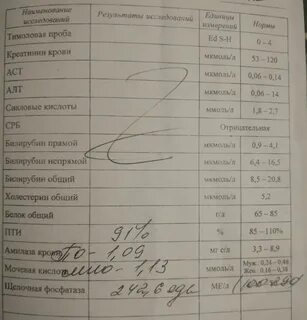 Наименование исследований Результаты исследований Единицы измерений Нормы
Тимоловая проба Ed S-H 0 – 4
Креатинин крови мкмоль/л 53 – 120
АСТ ммоль/л 0,06 – 0,14
АЛТ ммоль/л 0,06 – 14
Сиаловые кислоты ммоль/л 1,8 – 2,7
СРБ Отрицательная
Билирубин прямой мкмоль/л 0,9 – 4,1
Билирубин непрямой мкмоль/л 6,4 – 16,5
Билирубин общий мкмоль/л 8,5 – 20,8
Холестерин общий ммоль/л 5,2
Белок общий г/л 65 – 85
ПТИ 91% % 85 – 110%
Амилаза крови ПО - 1,09 мг с/л 3,3 – 8,9
Мочевая кислота МНО - 1,13 ммоль/л Муж. 0,24 – 0,46 Жен. 0,16 – 0,38
Щелочная фосфатаза 242,6 МЕ/л